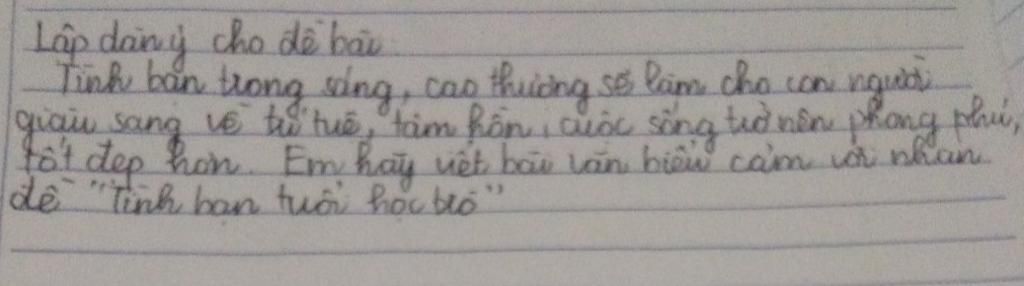 Lập dàn ý cho đề bài
Tình bạn trong sáng, cao thượng sẽ làm cho con người
giàu sang về trí tuệ, tâm hồn, cuộc sống trở nên phong phú,
tốt đẹp hơn. Em hãy viết bài văn biểu cảm với nhan
đề "Tình bạn tuổi học trò"